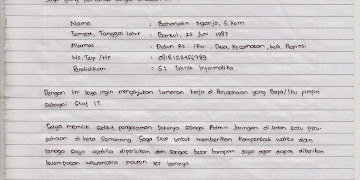 Nama : Baharudin Ngatijo, S.Kom
Tempat, Tanggal Lahir : Bantul, 25 Juni 1987
Alamat : Dusun Rt... /Rw... Desa, Kecamatan, Kab. Propinsi
No. Telp / Hp : 08123456789
Pendidikan : S1 Teknik Informatika
Dengan ini saya ingin mengajukan lamaran kerja di Perusahaan yang Bapak/Ibu pimpin
sebagai Staf IT.
Saya memiliki sedikit pengalaman bekerja sebagai Admin Jaringan di salah satu peru-
sahaan di kota Semarang. Saya siap untuk memberikan kompensasi waktu dan
tenaga saya apabila diperlukan dan sangat besar harapan saya agar dapat diberikan
kesempatan wawancara maupun tes lainnya.